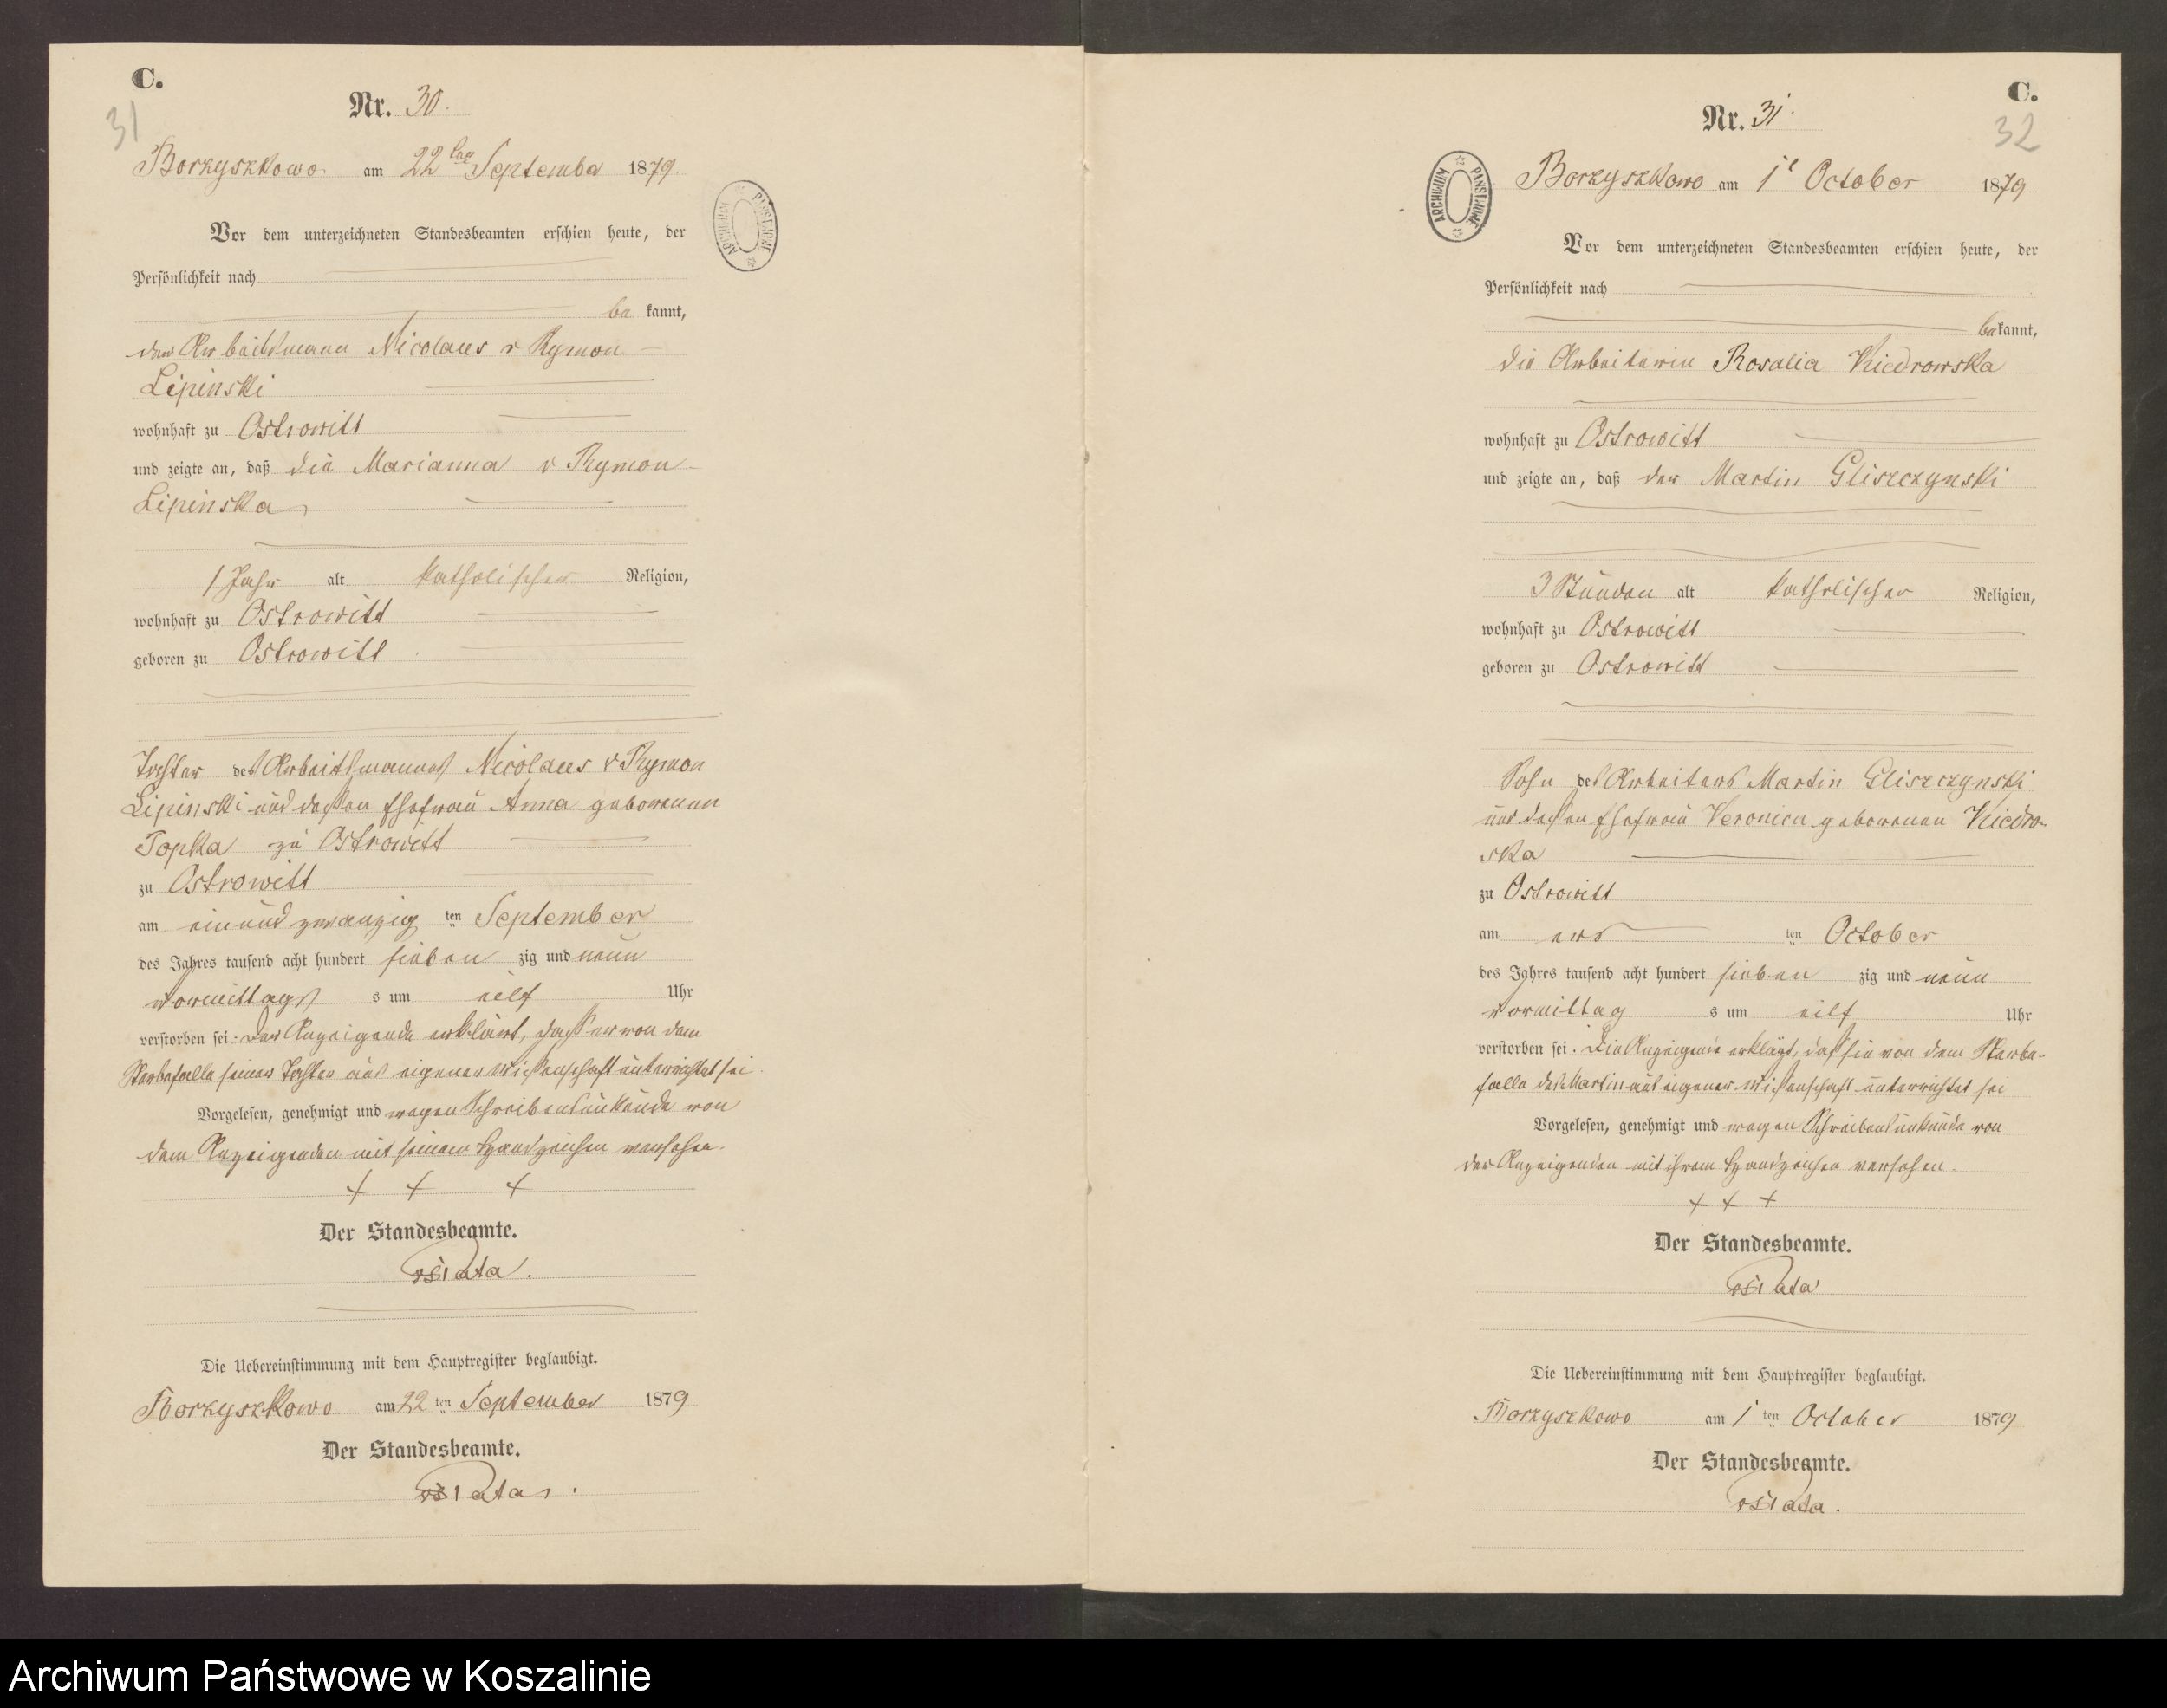 C.
31
Nr. 30.
Borzyszkowo am 22ten September 1879.
Vor dem unterzeichneten Standesbeamten erschien heute, der
Persönlichkeit nach
be kannt,
der Arbeitsmann Nicolaus v Rymon
Lipinski
wohnhaft zu Ostrowitt
und zeigte an, daß die Marianna v Rymon
Lipinska
1 Jahr alt katholischer Religion,
wohnhaft zu Ostrowitt
geboren zu Ostrowitt
Tochter des Arbeitsmannes Nicolaus v Rymon
Lipinski und dessen Ehefrau Anna geborenen
Topka zu Ostrowitt
zu Ostrowitt
am einundzwanzig ten September
des Jahres tausend acht hundert sieben zig und neun
Vormittags s um eilf Uhr
verstorben sei. Der Anzeigende erklärt, dass er von dem
Sterbefalle seiner Tochter aus eigener Wissenschaft unterrichtet sei.
Vorgelesen, genehmigt und wegen Schreibensunkunde von
dem Anzeigenden mit seinem Handzeichen versehen.
+ + +
Der Standesbeamte.
Die Uebereinstimmung mit dem Hauptregister beglaubigt.
Borzyszkowo am 22 ten September 1879
Der Standesbeamte.
C.
32
Nr. 31.
ARCHIWUM PAŃSTWOWE
Borzyszkowo am 1t October 1879
Vor dem unterzeichneten Standesbeamten erschien heute, der
Persönlichkeit nach
be kannt,
die Arbeiterin Rosalia Kiedrowska
wohnhaft zu Ostrowitt
und zeigte an, daß der Martin Gliszczynski
3 Stunden alt katholischer Religion,
wohnhaft zu Ostrowitt
geboren zu Ostrowitt
Sohn des Arbeiters Martin Gliszczynski
und dessen Ehefrau Veronica geborenen Kiedro-
ska
zu Ostrowitt
am ers ten October
des Jahres tausend acht hundert sieben zig und neun
Vormittag s um eilf Uhr
verstorben sei. Die Anzeigende erklärt, daß sie von dem Sterbe-
falle des Martin aus eigener Wissenschaft unterrichtet sei
Vorgelesen, genehmigt und wegen Schreibensunkunde von
der Anzeigenden mit ihrem Handzeichen versehen.
+ + +
Der Standesbeamte.
Die Uebereinstimmung mit dem Hauptregister beglaubigt.
Borzyszkowo am 1 ten October 1879
Der Standesbeamte.
Archiwum Państwowe w Koszalinie